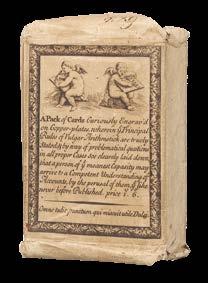 A Pack of Cards Curiously Engrav'd
on Copper-plates, wherein yͤ Principal
Rules of Vulgar Arithmetick are truely
Stated; by way of problematical question
in all proper Cases & so clearly laid down
that a person of yͤ meanest Capacity may
arrive to a Competent Understanding of
Accounts, by the perusal of them, yͤ like
never before Published. price 1. 6.
Omne tulit punctum qui miscuit utile Dulci